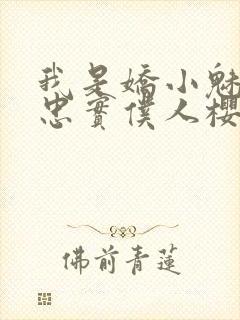 我是嬌小魅
忠實僕人櫻
佛前青蓮